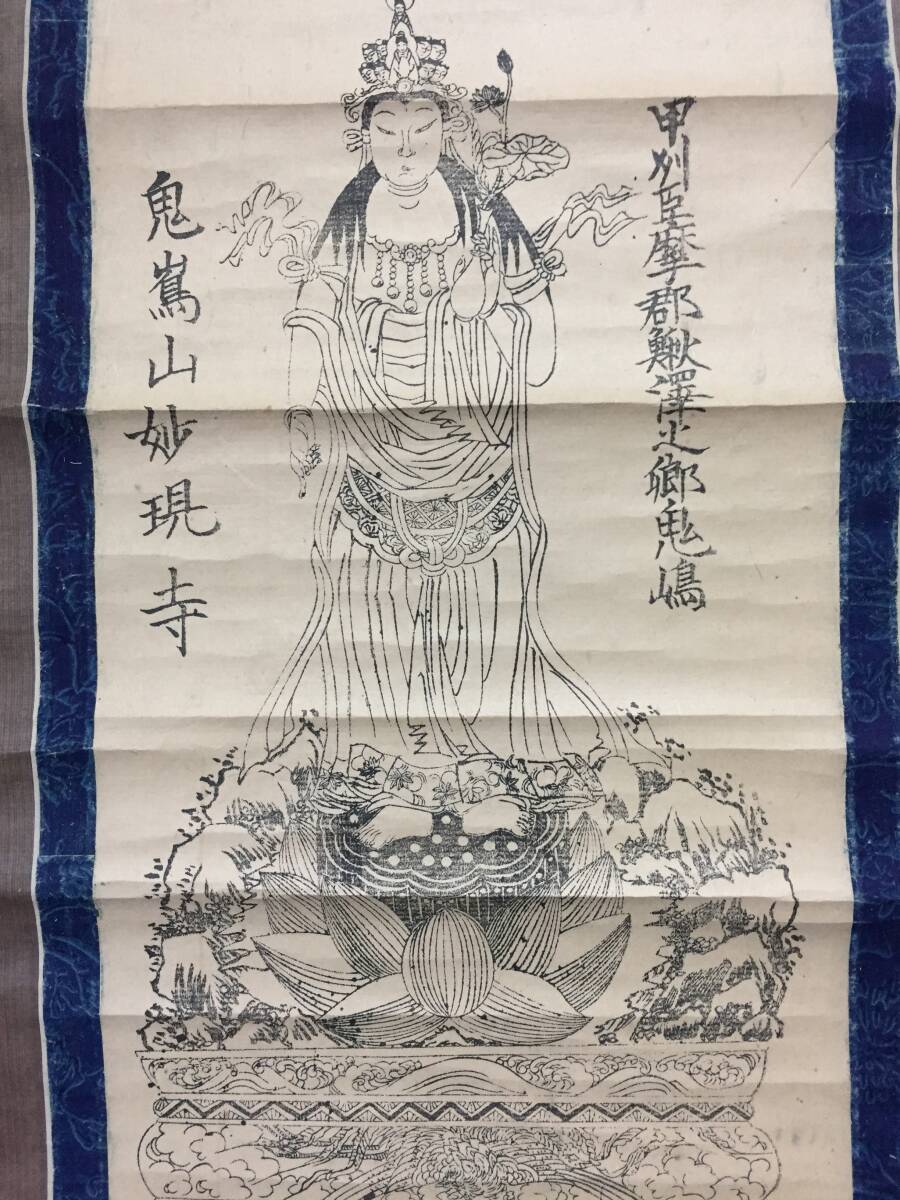 甲州巨摩郡鰍澤之郷鬼嶋
鬼嶌山妙現寺